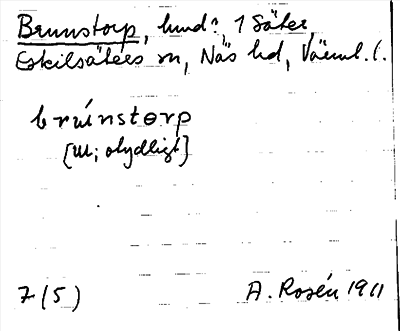 Brunnstorp, hmd?, 1 Säter,
Eskilsäters sn, Näs hd, Värml. l.
brúnstɵrp
[u; otydligt]
7 (5)
A. Rosén 1911